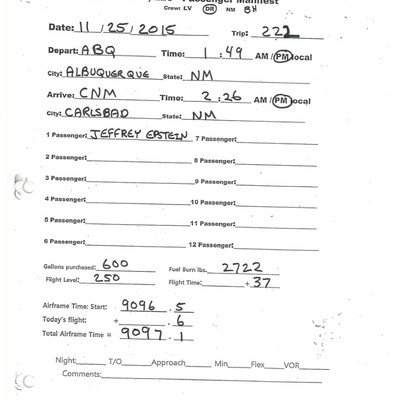 Passenger Manifest
Crew: LV DR NM BH
Date: 11/25/2015 Trip: 222
Depart: ABQ Time: 1:49 AM / PM local
City: ALBUQUERQUE State: NM
Arrive: CNM Time: 2:26 AM / PM local
City: CARLSBAD State: NM
1 Passenger: JEFFREY EPSTEIN 7 Passenger:
2 Passenger: 8 Passenger:
3 Passenger: 9 Passenger:
4 Passenger: 10 Passenger:
5 Passenger: 11 Passenger:
6 Passenger: 12 Passenger:
Gallons purchased: 600 Fuel Burn lbs. 2722
Flight Level: 250 Flight Time: + 37
Airframe Time: Start: 9096.5
Today's flight: + .6
Total Airframe Time = 9097.1
Night: T/O Approach Min Flex VOR
Comments: